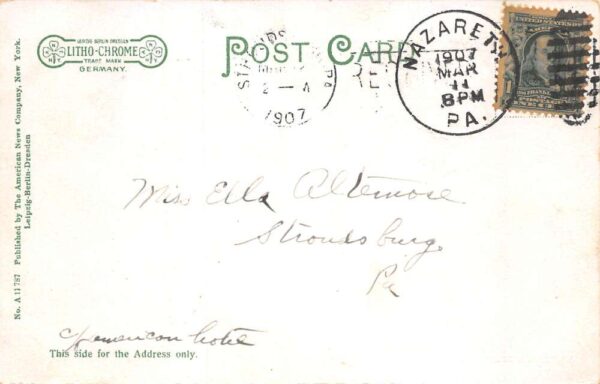 LEIPZIG-BERLIN-DRESDEN
LITHO-CHROME
TRADE MARK
GERMANY.
POST CARD
NAZARETH
1907
MAR
11
8PM
PA.
2 — A
1907
UNITED STATES OF
Miss Ella Altemose
Stroudsburg
Pa
American hotel
This side for the Address only.
No. A 11787 Published by The American News Company, New York.
Leipzig-Berlin-Dresden